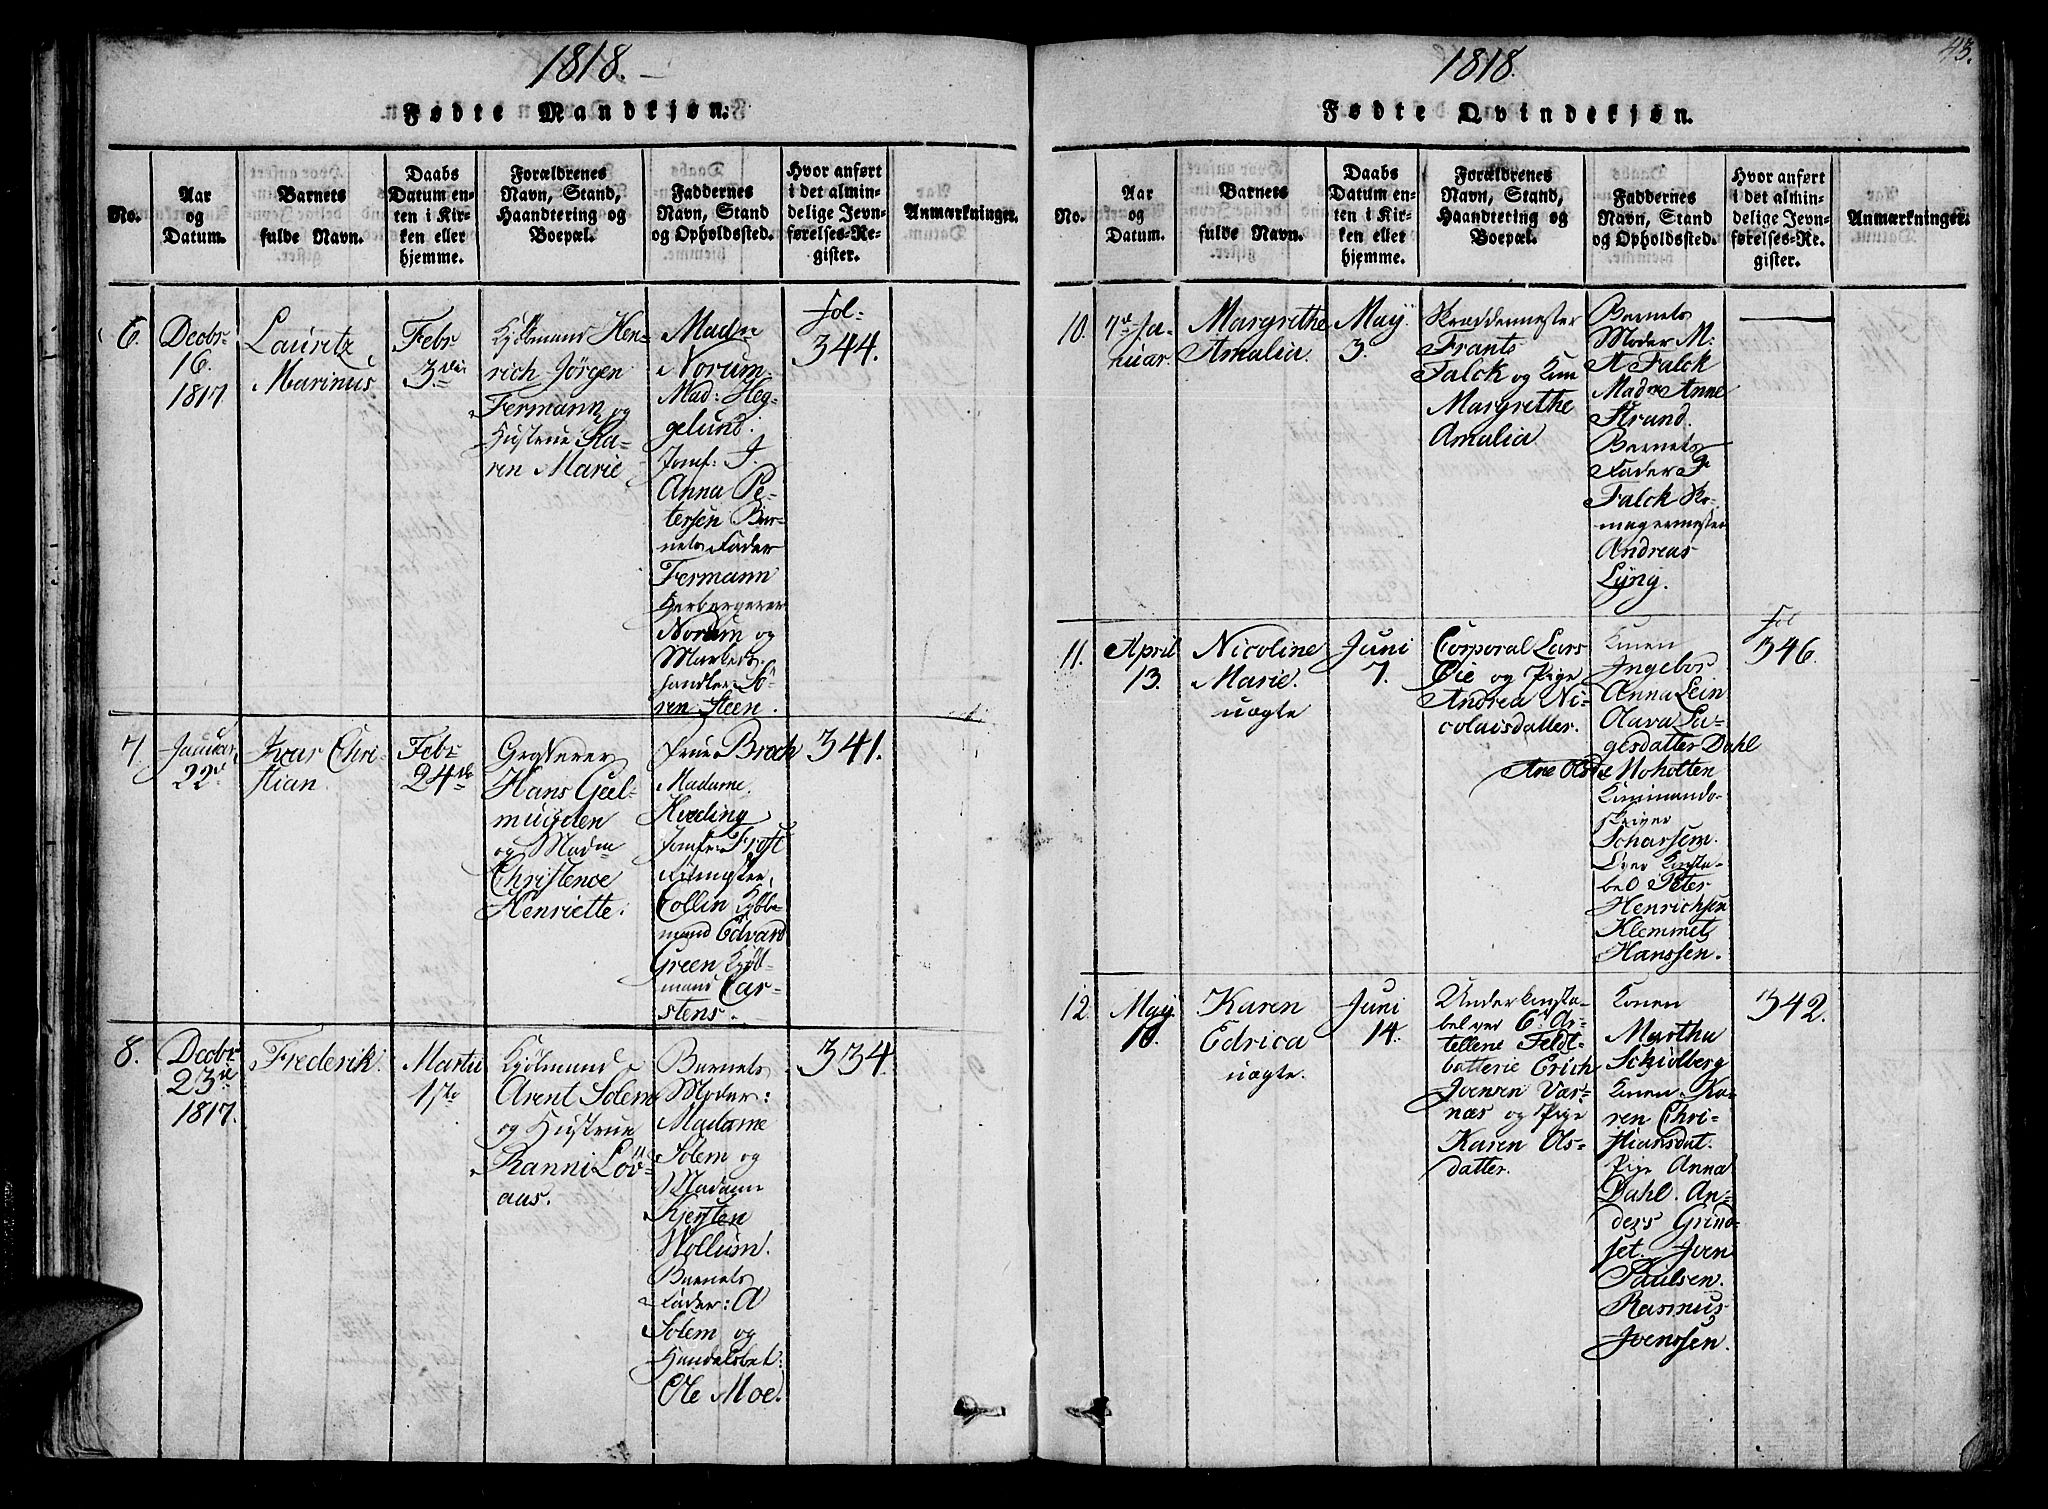 1818.
Fødte Mandkjøn.
No.
Aar
og
Datum.
Barnets
fulde Navn.
Daabs
Datum en-
ten i Kir-
ken eller
hjemme.
Forældrenes
Navn, Stand,
Haandtering og
Boepæl.
Faddernes
Navn, Stand
og Opholdssted.
Hvor anført
i det almin-
delige Jevn-
førelses-Re-
gister.
Anmærkninger.
6.
Decbr
16.
1817
Lauritz
Marinus
Febr
3die
Kjøbmand Hen-
rich Jørgen
Fermann og
Hustrue Ka-
ren Marie
Madm
Norum.
Mad: Heg-
gelund.
Jomf: J.
Anna Pe-
tersen Bar-
nets Fader
Fermann
Herbergerer
Norum og
Marken-
handler Sö-
ren Steen.
fol-
344.
7.
Januar
22d
Ivar Chri-
stian.
Febr
24de
Hans Geel-
muyden
og Madm
Christence
Henriette.
Frue Broch
Madame
Hveding
Jomfrue Frost
Collin Kjøbe-
mand Edvard
Green Kjöb-
mand Car-
stens.
341.
8.
Decbr
23de
1817.
Frederik.
Martii
17de
Kjøbmand
Arent Solem
og Hustrue
Ranni Löv-
aas.
Barnets
Moder:
Madame
Solem og
Madame
Kjersten
Wollum.
Barnets
Fader: A
Solem og
Handelsbet:
Ole Moe.
334.
1818.
43.
Fødte Qvindekjøn.
No.
Aar
og
Datum.
Barnets
fulde Navn.
Daabs
Datum en-
ten i Kir-
ken eller
hjemme.
Forældrenes
Navn, Stand,
Haandtering og
Boepæl.
Faddernes
Navn, Stand
og Opholdssted.
Hvor anført
i det almin-
delige Jevn-
førelses-Re.
gister.
Anmærkninger.
10.
7de Ja-
nuar.
Margrethe
Amalia.
May
3.
Skreddermester
Frants
Falck og Kone
Margrethe
Amalia
Barnets
Moder M:
A Falck
Madm Anne
Strand.
Barnets
Fader F
Falck Ko-
magermester
Andreas
Lyng.
11.
April
13.
Nicoline
Marie.
uægte
Juni
7.
Corporal Lars
Öie og Pige
Andrea Ni-
colaisdatter.
Konen
Ingebor
Anna Lein
Olava La-
gesdatter Dahl
Ane Olsd Moholten
Kommando-
skriver
Scharssem.
Over Konsta-
bel Peter
Henrichsen
Klemmet
Hanssen.
fol
346.
12.
May
10.
Karen
Edrica
uægte.
Juni
14.
Under konsta-
bel ved 6te Ar-
tellerie Feldt-
batterie Erich
Joensen Vær-
næs og Pige
Karen Ols-
datter.
Konen
Martha
Schiolberg
Konen Ka-
ren Chri-
stiansdat.
Pige Anna
Dahl. An-
ders Grind-
set. Joen
Paulsen.
Rasmus
Joenssen.
342.